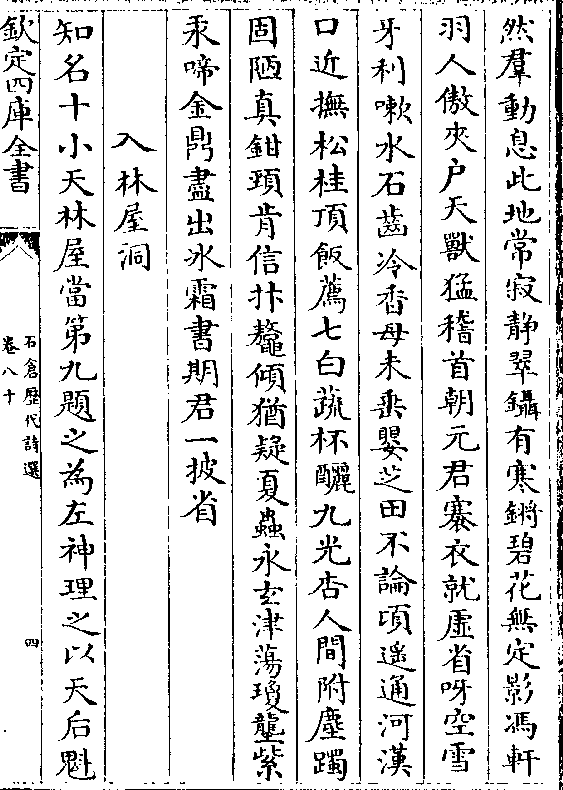 然羣動息此地常寂静翠鑷有寒鏘碧花無定影馮軒
羽人傲夾户天獸猛稽首朝元君褰衣就虛省呀空雪
牙利嗽水石齒冷香母未垂嬰芝田不論頃遥通河漢
口近撫松桂頂飯薦七白蔬杯釃九光杏人間附塵躅
固陋真鉗頸肯信抃鼇傾猶疑夏蟲永玄津蕩瓊壟紫
汞啼金鼎盡出冰霜書期君一披省
入林屋洞
知名十小天林屋當第九題之為左神理之以天后魁
欽定四庫全書
石倉歷代詩選
卷八十
四